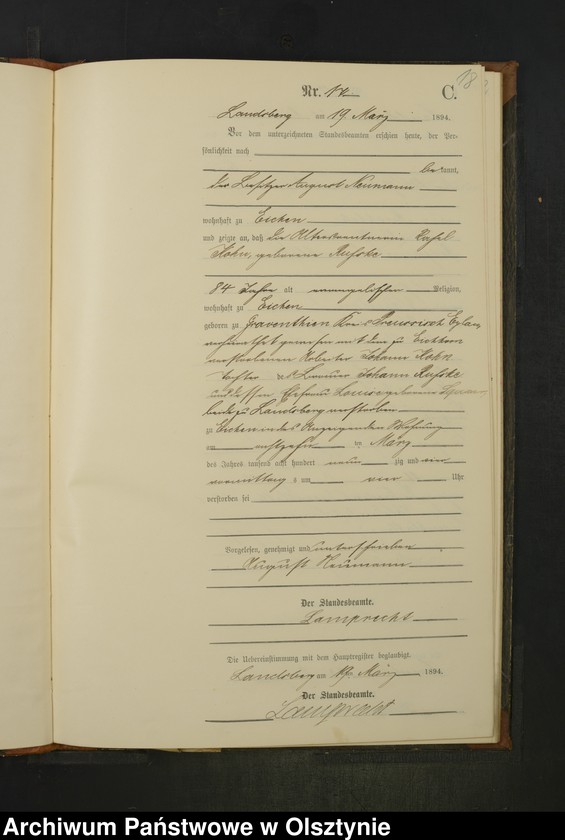 18
Nr. 17
C.
Landsberg am 19 März 1894.
Vor dem unterzeichneten Standesbeamten erschien heute, der Per-
sönlichkeit nach
bekannt,
der Besitzer August Neumann
wohnhaft zu Eichen
und zeigte an, daß die
Hohn, geborene
84 Jahre alt evangelischer Religion,
wohnhaft zu Eichen
geboren zu Graventhien Kreis Preussisch Eylau
verheirathet gewesen mit dem zu
verstorbenen Johann Hohn
Tochter des Johann
und dessen Ehefrau Louise geborene
beide zu Landsberg verstorben
zu Eichen in des Anzeigenden Wohnung
am achtzehn ten März
des Jahres tausend acht hundert neun zig und vier
vormittag s um vier Uhr
verstorben sei
Vorgelesen, genehmigt und unterschrieben
August Neumann
Der Standesbeamte.
Lamprecht
Die Uebereinstimmung mit dem Hauptregister beglaubigt.
Landsberg am 19 März 1894.
Der Standesbeamte.
Lamprecht
Archiwum Państwowe w Olsztynie